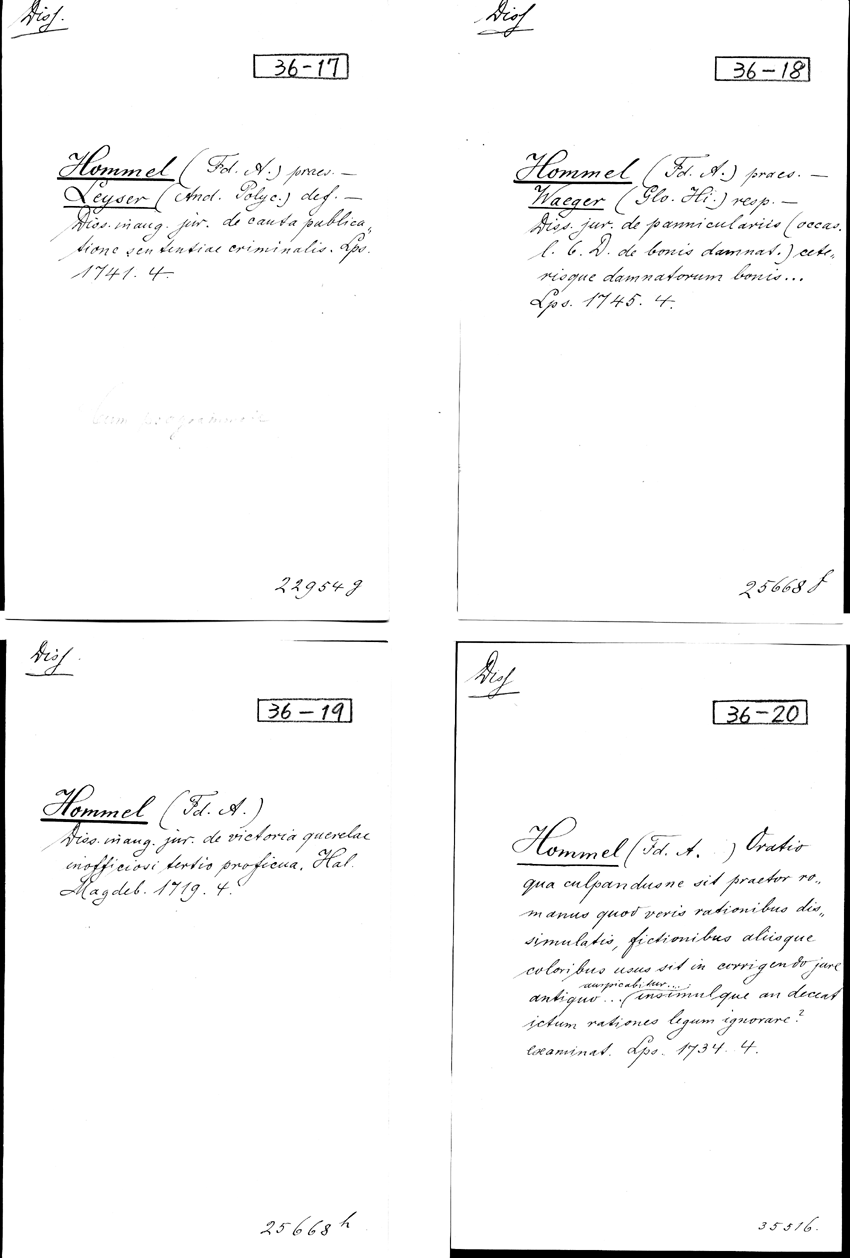 Diss.
36-17
Hommel (Fd. A.) praes. —
Leyser (And. Polyc.) def. —
Diss. inaug. jur. de cauta publica„
tione sententiae criminalis. Lps.
1741. 4.
cum programmate
22954 g
Diss
36-18
Hommel (Fd. A.) praes. —
Waeger (Glo. Hi.) resp. —
Diss. jur. de panniculariis (occas.
l. 6. D. de bonis damnat.) cete„
risque damnatorum bonis...
Lps. 1745. 4.
25668 f
Diss.
36-19
Hommel (Fd. A.)
Diss. inaug. jur. de victoria querelae
inofficiosi tertio proficua. Hal.
Magdeb. 1719. 4.
25668 h
Diss
36-20
Hommel (Fd. A. ) Oratio
qua culpandusne sit praetor ro„
manus quod veris rationibus dis„
simulatis, fictionibus aliisque
coloribus usus sit in corrigendo jure
auspicabitur...
antiquo... (insimulque an deceat
ictum rationes legum ignorare?
examinat. Lps. 1734. 4.
35516.